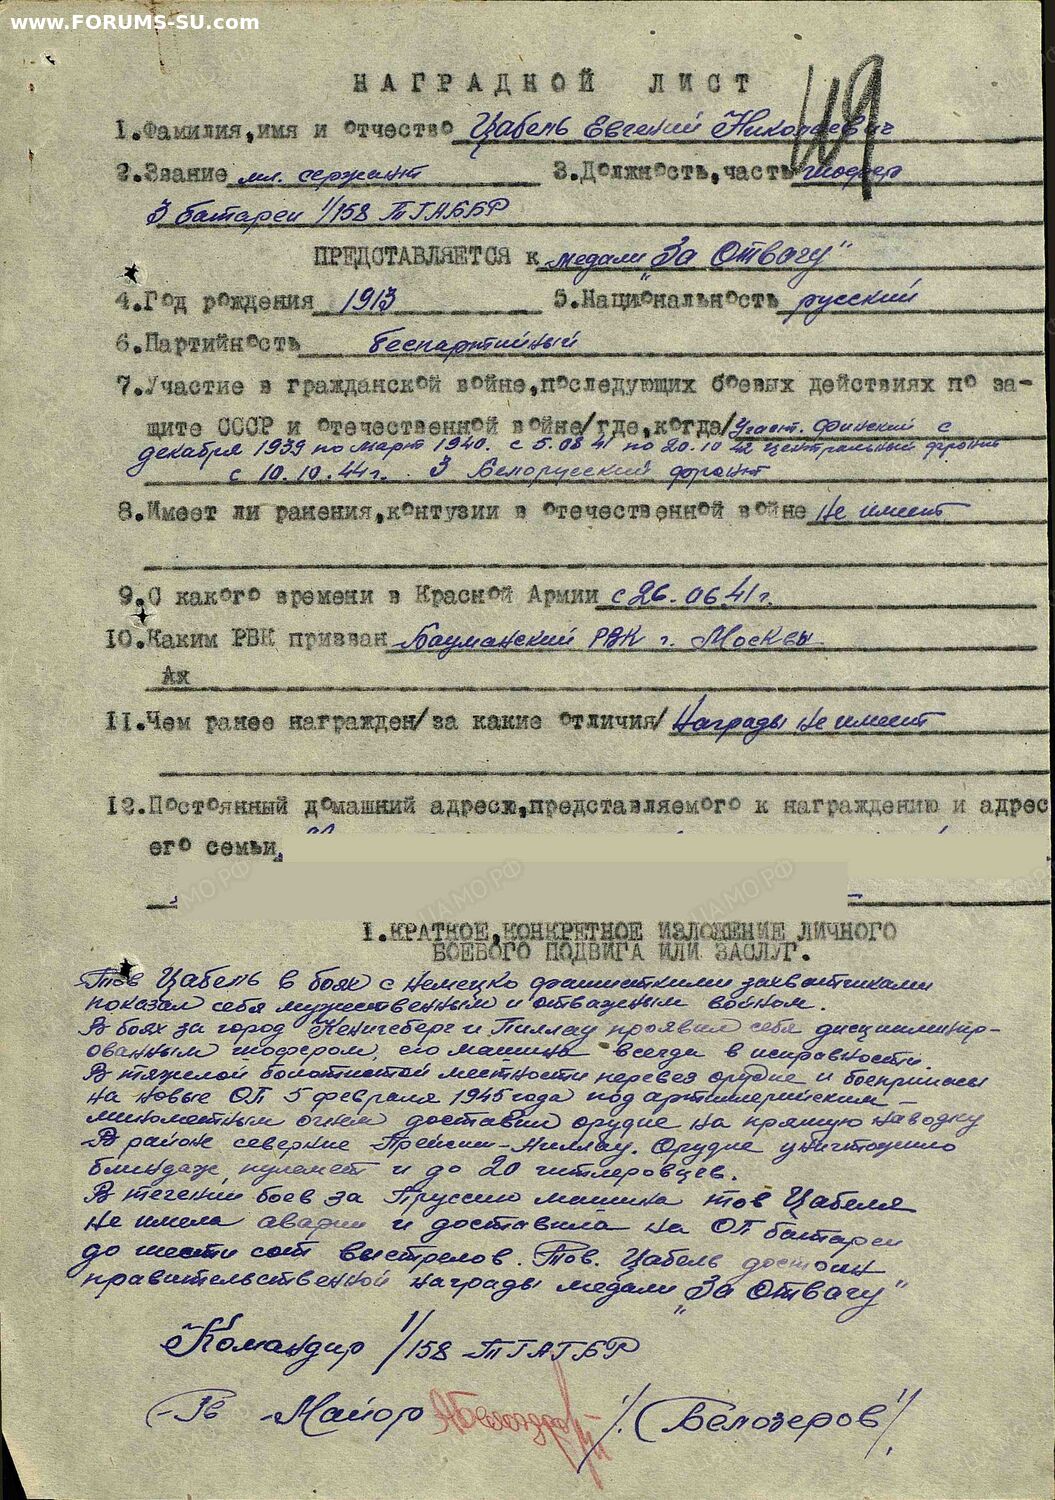 www.FORUMS-SU.com
119
НАГРАДНОЙ ЛИСТ
1.Фамилия,имя и отчество Цабель Евгений Николаевич
2.Звание мл. сержант 3.Должность,часть шофер
3 батареи 1/158 ТГАББР
ПРЕДСТАВЛЯЕТСЯ к медали "За Отвагу"
4.Год рождения 1913 5.Национальность русский
6.Партийность беспартийный
7.Участие в гражданской войне,последующих боевых действиях по за-
щите СССР и отечественной войне/где,когда/ Участ. финский с
декабря 1939 по март 1940. с 5.08 41 по 20.10 42 Центральный фронт
с 10.10.44г. 3 Белорусский фронт
8.Имеет ли ранения,контузии в отечественной войне не имеет
9.С какого времени в Красной Армии с 26.06.41г.
10.Каким РВК призван Бауманский РВК г. Москвы
Ая
11.Чем ранее награжден/за какие отличия/ Награды не имеет
12.Постоянный домашний адресж,представляемого к награждению и адрес
его семьи,
1.КРАТКОЕ,КОНКРЕТНОЕ ИЗЛОЖЕНИЕ ЛИЧНОГО
БОЕВОГО ПОДВИГА ИЛИ ЗАСЛУГ.
Тов Цабель в боях с немецко фашисткими захватчиками
показал себя мужественным и отважным войном.
В боях за город Кенигсберг и Пиллау проявил себя дисциплинир-
ованным шофером, его машина всегда в исправности.
В тяжелой болотистой местности перевез орудие и боеприпасы
на новые ОП 5 февраля 1945 года под артиллерийским-
минометным огнем доставил орудие на прямую наводку
В районе севернее Прейсиш-Пиллау. Орудие уничтожило
блиндаж, пулемет и до 20 гитлеровцев.
В течений боев за Пруссию машина тов Цабеля
не имела аварии и доставила на ОП батареи
до шести сот выстрелов. Тов. Цабель достоин
правительственной награды медали "За Отвагу"
Командир 1/158 ТГАГБР
Гв Майор /Белозеров/
ЦАМО РФ